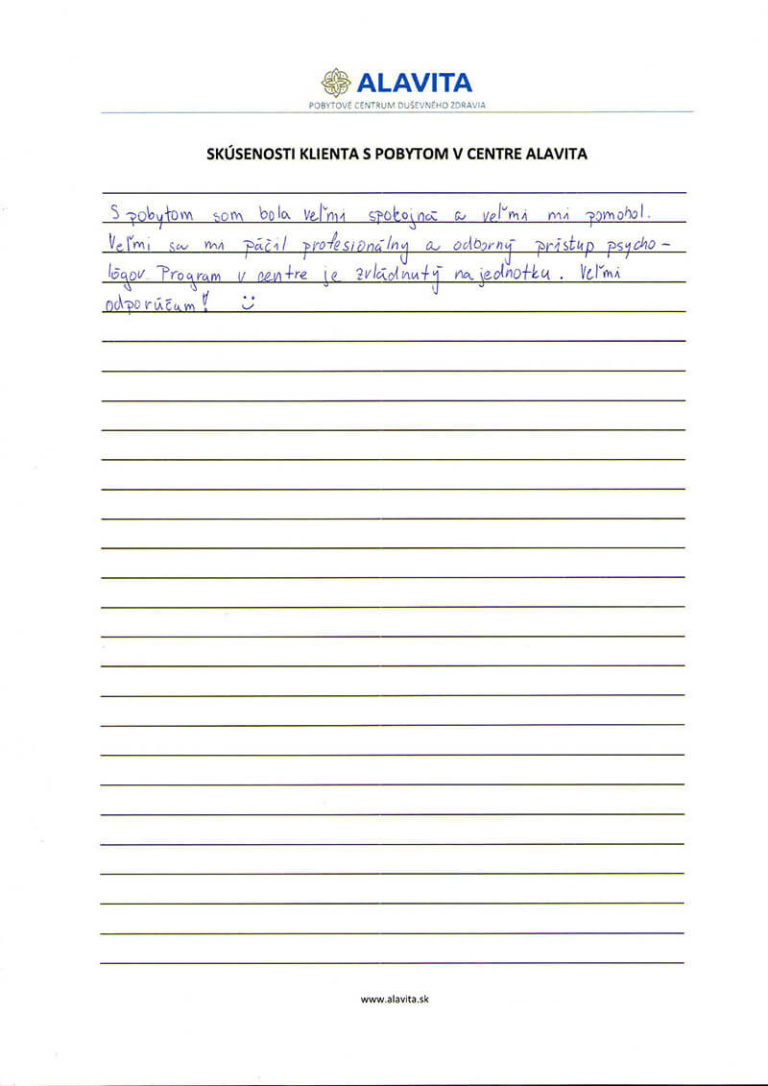 ALAVITA
POBYTOVÉ CENTRUM DUŠEVNÉHO ZDRAVIA
SKÚSENOSTI KLIENTA S POBYTOM V CENTRE ALAVITA
S pobytom som bola veľmi spokojná a veľmi mi pomohol.
Veľmi sa mi páčil profesionálny a odborný prístup psycho-
lógov. Program v centre je zvládnutý na jednotku. Veľmi
odporúčam! :)
www.alavita.sk